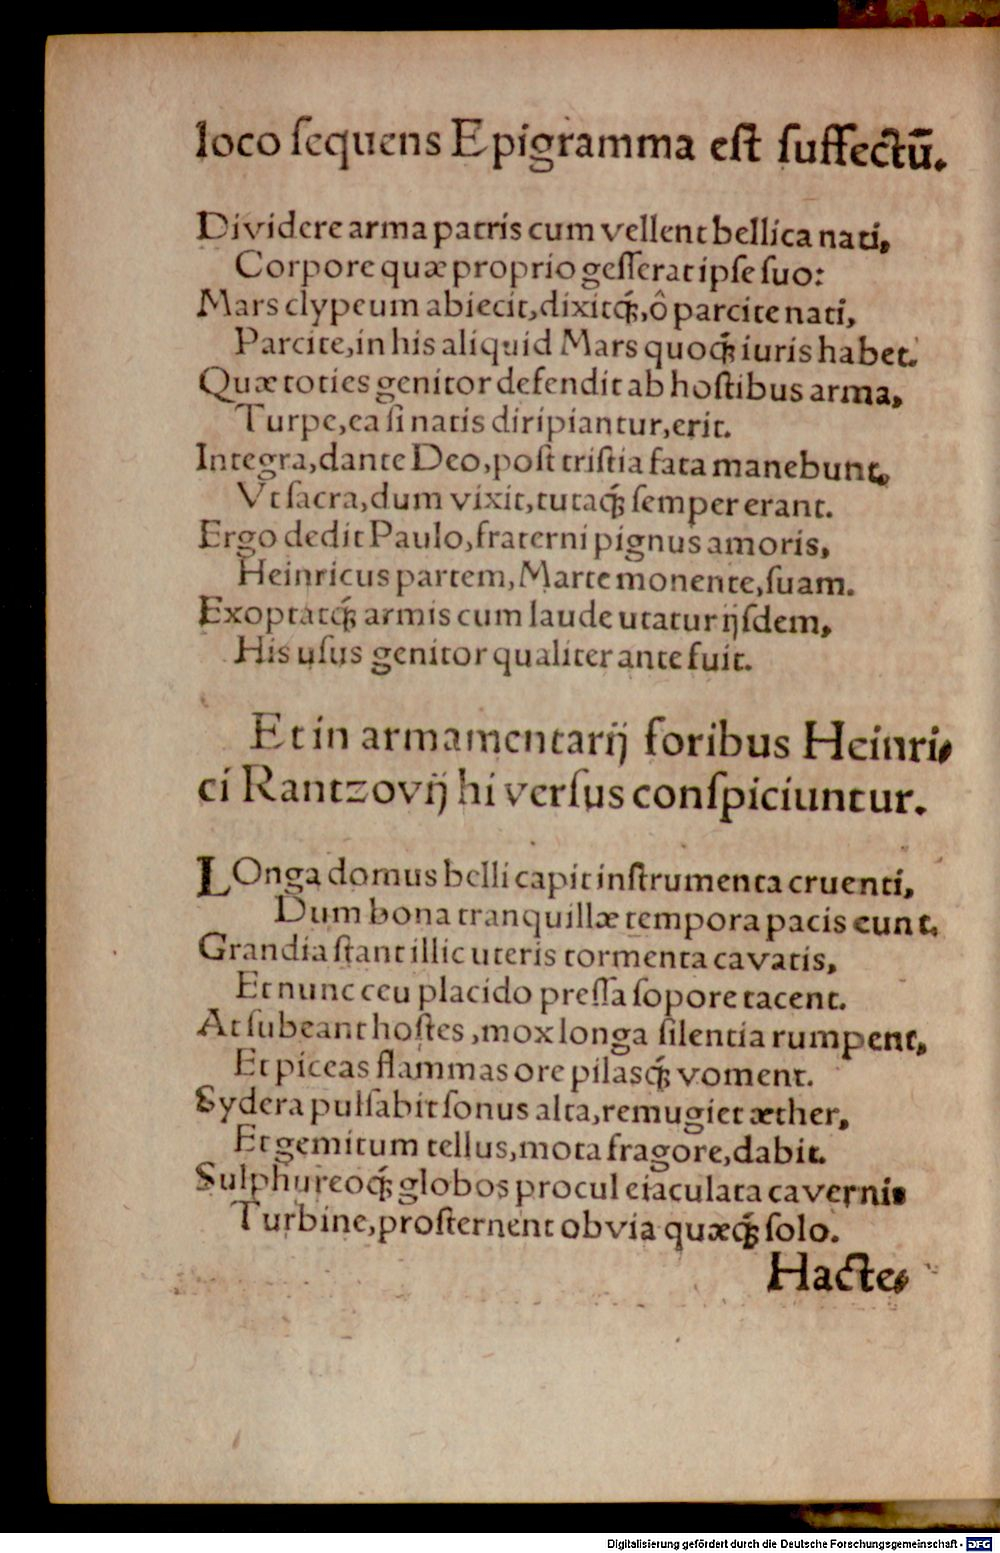 loco ſequens Epigramma eſt ſuffectū.
Dividere arma patris cum vellent bellica nati,
Corpore quæ proprio geſſerat ipſe ſuo:
Mars clypeum abiecit, dixitq́ꝫ, ô parcite nati,
Parcite, in his aliquid Mars quoq́ꝫ iuris habet.
Quæ toties genitor defendit ab hoſtibus arma,
Turpe, ea ſi natis diripiantur, erit.
Integra, dante Deo, poſt triſtia fata manebunt,
Vt ſacra, dum vixit, tutaq́ꝫ ſemper erant.
Ergo dedit Paulo, fraterni pignus amoris,
Heinricus partem, Marte monente, ſuam.
Exoptatq́ꝫ armis cum laude utatur ijſdem,
His uſus genitor qualiter ante fuit.
Et in armamentarij foribus Heinri-
ci Rantzovij hi verſus conſpiciuntur.
LOnga domus belli capit inſtrumenta cruenti,
Dum bona tranquillæ tempora pacis eunt.
Grandia ſtant illic uteris tormenta cavatis,
Et nunc ceu placido preſſa ſopore tacent.
At ſubeant hoſtes, mox longa ſilentia rumpent,
Et piceas flammas ore pilasq́ꝫ voment.
Sydera pulſabit ſonus alta, remugiet æther,
Et gemitum tellus, mota fragore, dabit.
Sulphureoq́ꝫ globos procul eiaculata cavernis
Turbine, proſternent obvia quæq́ꝫ ſolo.
Hacte-
Digitalisierung gefördert durch die Deutsche Forschungsgemeinschaft - DFG